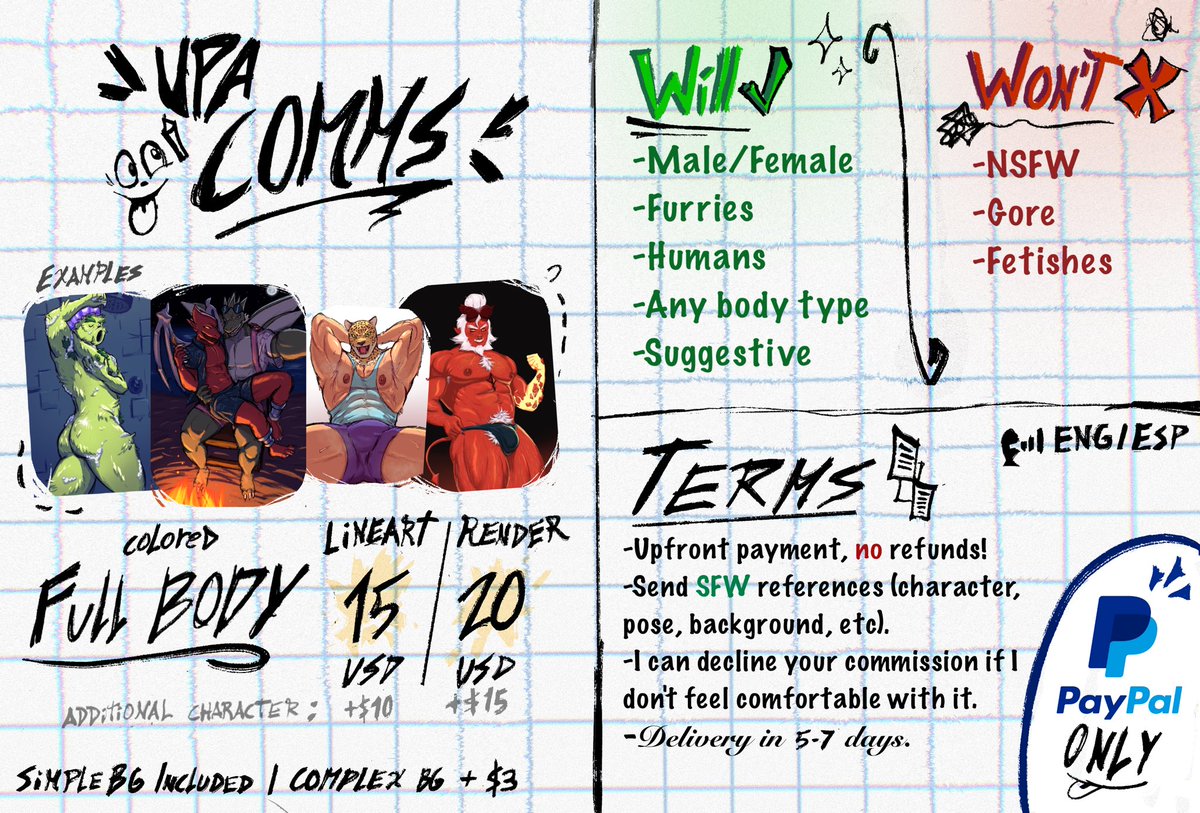 UPA
COMMS
EXAMPLES
COLORED
FULL BODY
LINEART | RENDER
15 | 20
USD | USD
ADDITIONAL CHARACTER: +$10 +$15
SIMPLE BG INCLUDED / COMPLEX BG + $3
Will
-Male/Female
-Furries
-Humans
-Any body type
-Suggestive
WON'T
-NSFW
-Gore
-Fetishes
TERMS
ENG/ESP
-Upfront payment, no refunds!
-Send SFW references (character,
pose, background, etc).
-I can decline your commission if I
don't feel comfortable with it.
-Delivery in 5-7 days.
PayPal
ONLY